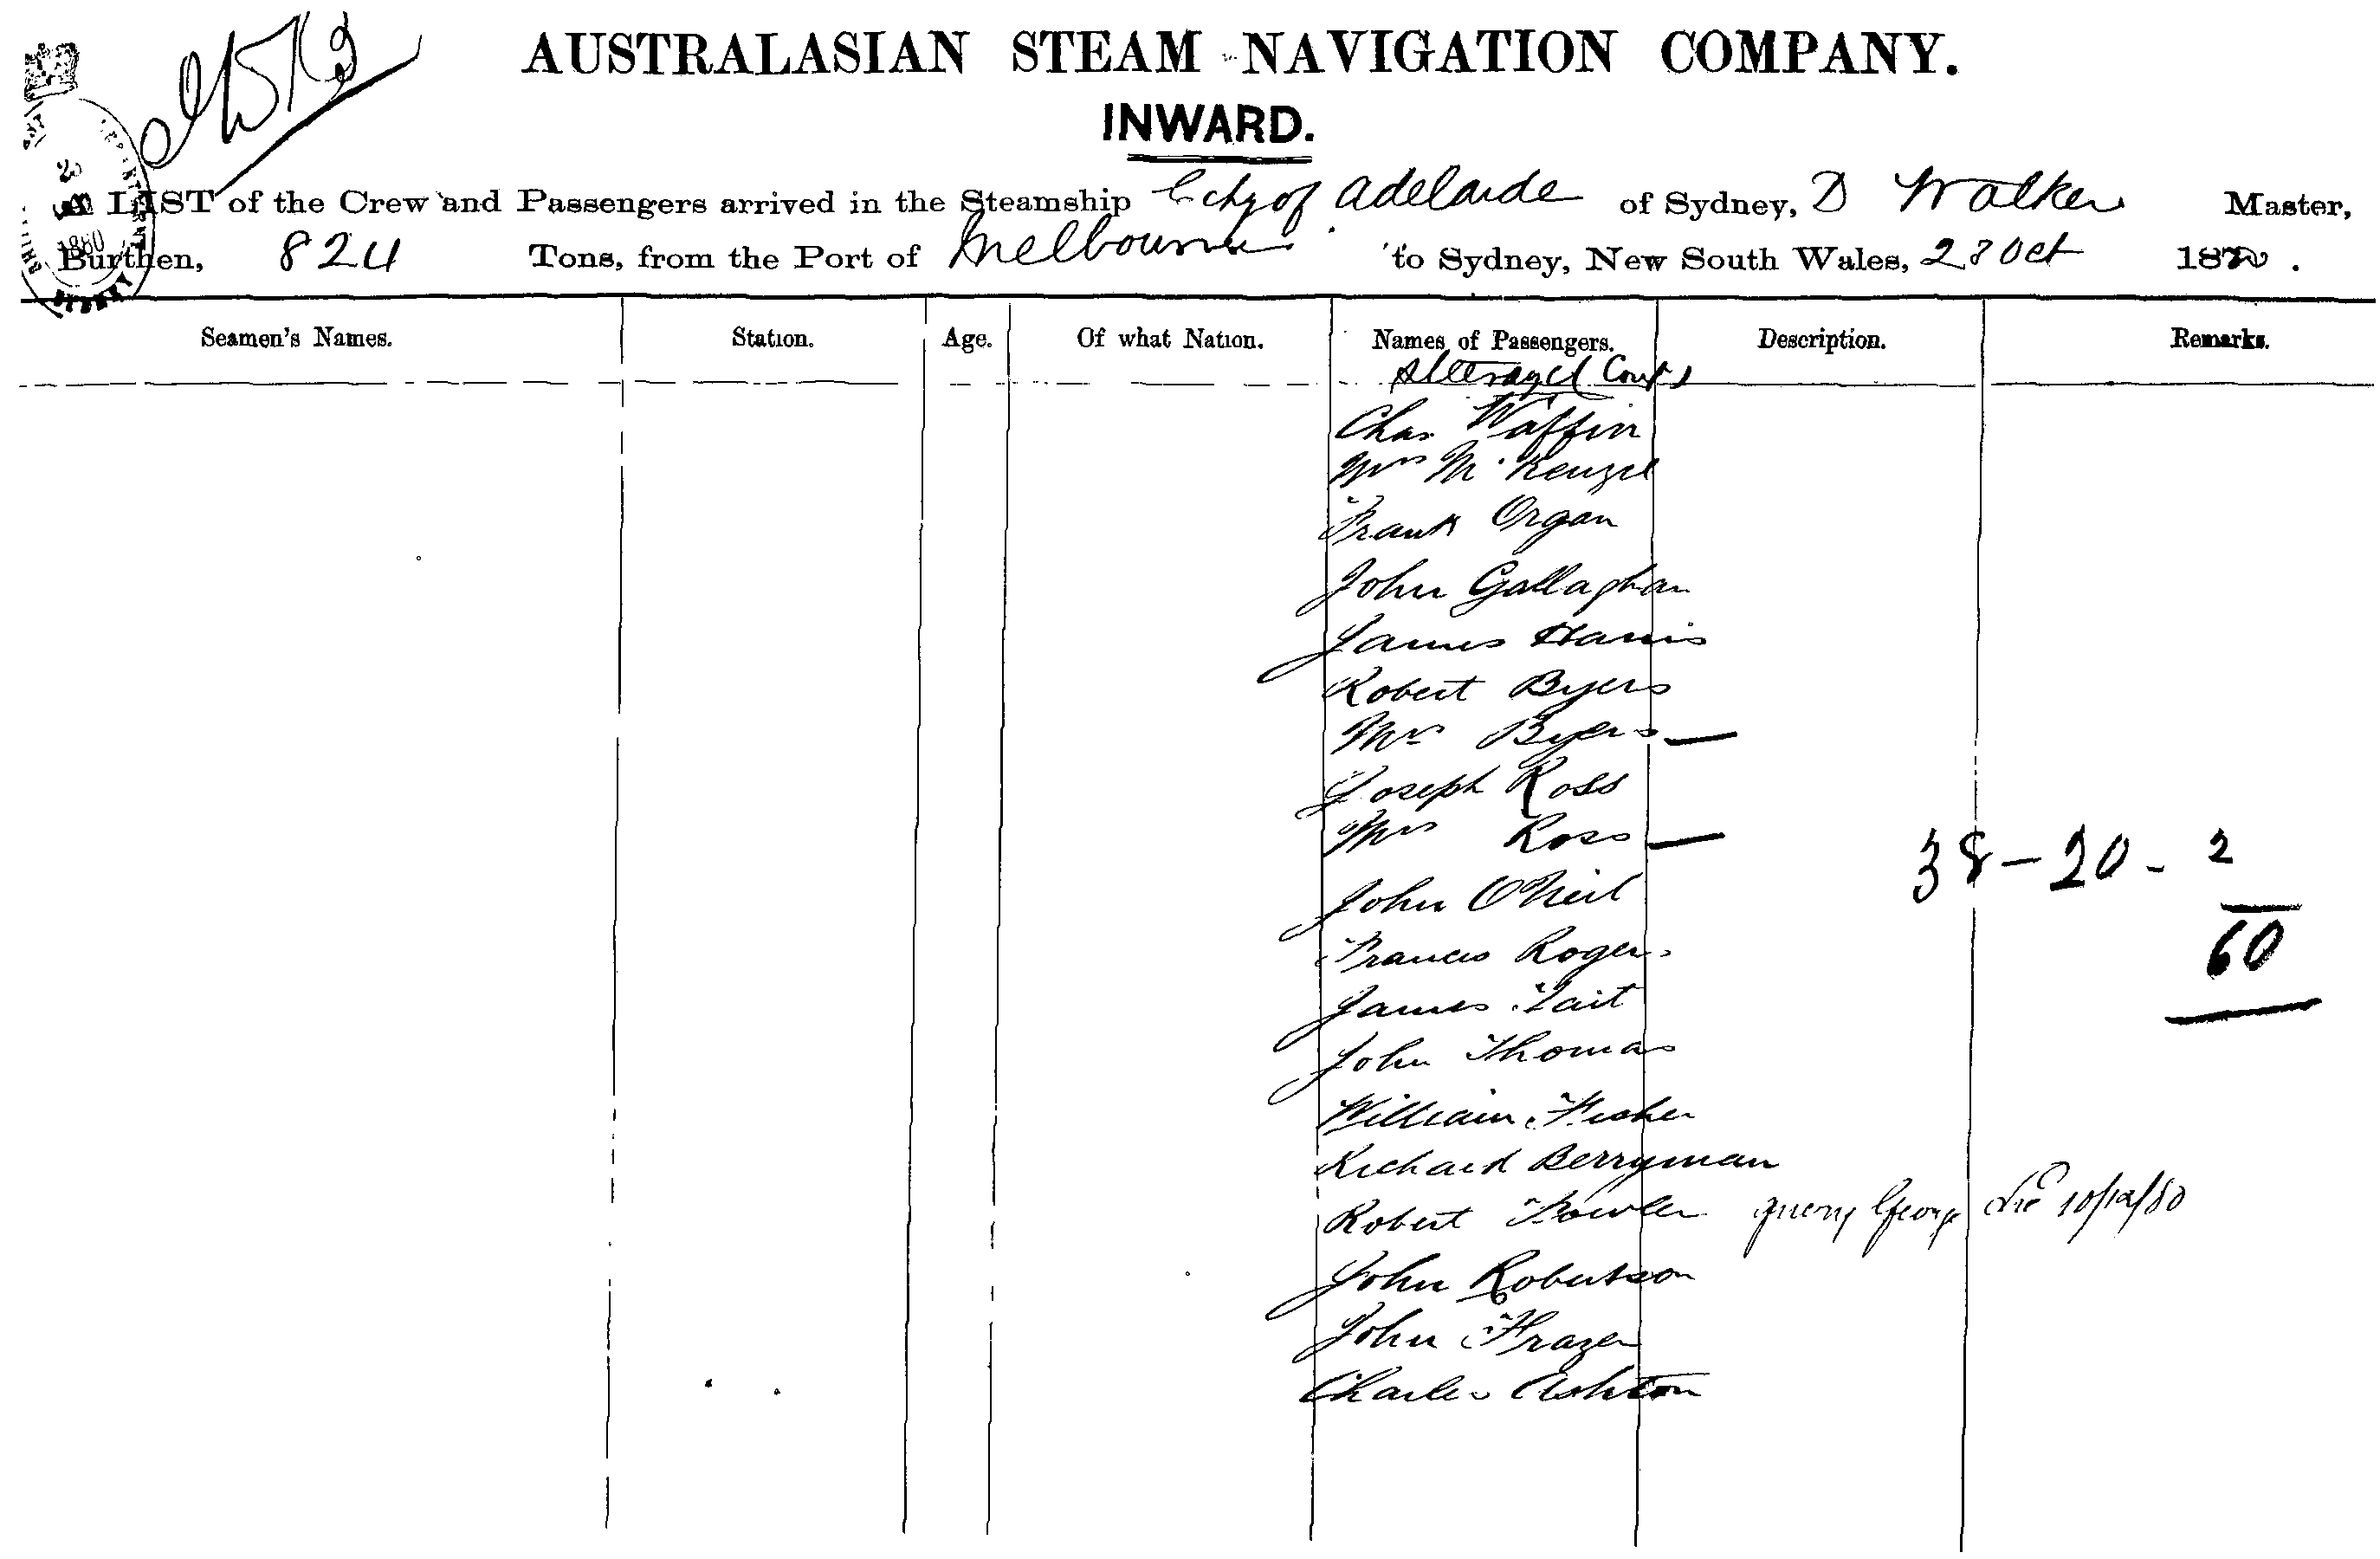 AUSTRALASIAN STEAM NAVIGATION COMPANY.
INWARD.
LIST of the Crew and Passengers arrived in the Steamship City of Adelaide of Sydney, D Walker Master,
Burthen, 824 Tons, from the Port of Melbourne to Sydney, New South Wales, 28 Oct 1880.
Seamen's Names. Station. Age. Of what Nation. Names of Passengers. Description. Remarks.
Steerage Contd
Chas Waffin
Mrs McKenzie
Frank Organ
John Gallaghan
James Harris
Robert Byers
Mrs Byers —
Joseph Ross
Mrs Ross —
38 - 20 - 2
John O'Neil
60
Francis Rogers
James Tait
John Thomas
William Fisher
Richard Berryman
Robert Fowler query George 10/12/80
John Robertson
John Frazer
Charles Ashton
1880
SYDNEY